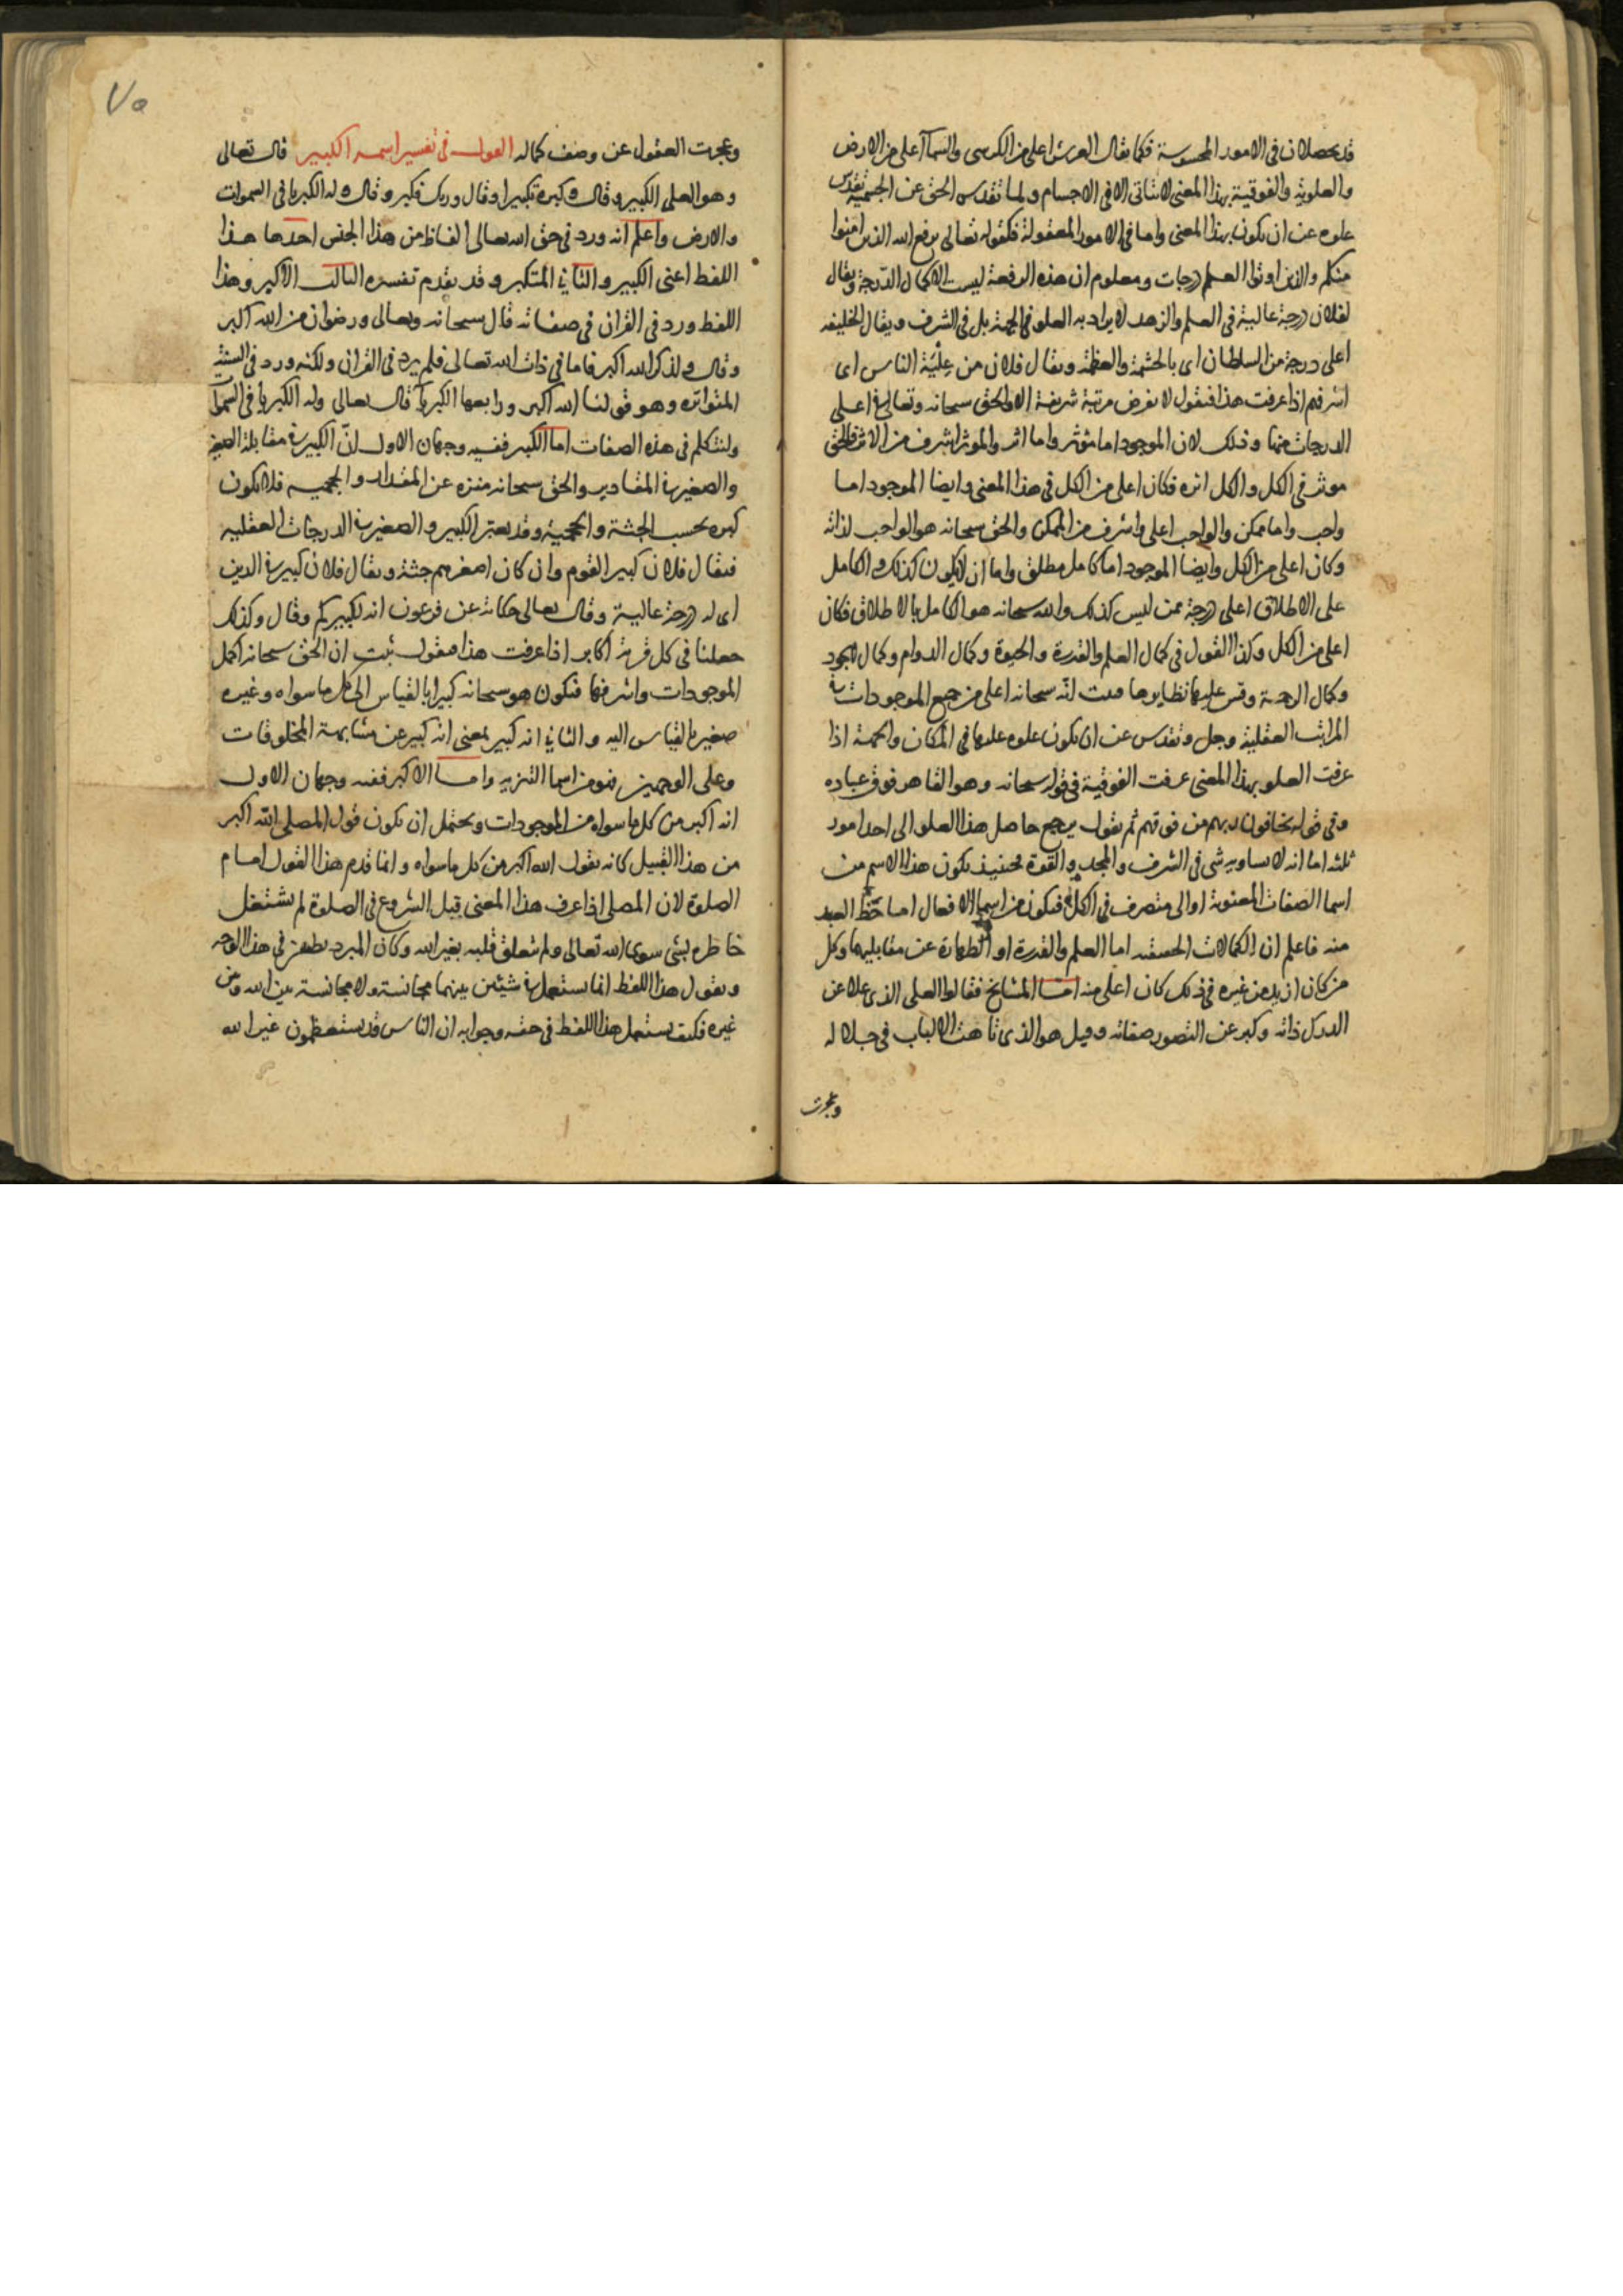 قد يحصلان في الامور المحسوسة فكما يقال العرش اعلى من الكرسى والسمآ اعلى من الارض
والعلوية والفوقية بهذا المعنى لا تتاتى الا فى الاجسام ولما تقدس الحق عن الجسمية تقدس
علوه عن ان يكون بهذا المعنى واما فى الامور المعقولة فكقوله تعالى يرفع الله الذين امنوا
منكم والذين اوتوا العلم درجات ومعلوم ان هذه الرفعة ليست الا كمال الدرجة ويقال
لفلان درجة عالية فى العلم والزهد لا يراد به العلو فى الجهة بل فى الشرف ويقال الخليفه
اعلى درجة من السلطان اى بالحشمة والعظمة ويقال فلان من علية الناس اى
اشرفهم اذا عرفت هذا فنقول لا نفرض مرتبة شريفة الا والحق سبحانه وتعالى فى اعلى
الدرجات منها وذلك لان الموجود اما مؤثر واما اثر والموثر اشرف من الاثر فالحق
موثر فى الكل والكل اثره فكان اعلى من الكل فى هذا المعنى وايضا الموجود اما
واجب واما ممكن والواجب اعلى واشرف من الممكن والحق سبحانه هو الواجب لذاته
وكان اعلى من الكل وايضا الموجود اما كامل مطلق واما ان لا يكون كذلك والكامل
على الاطلاق اعلى درجة ممن ليس كذلك والله سبحانه هو الكامل بالاطلاق فكان
اعلى من الكل وكذا القول فى كمال العلم والقدرة والحيوة وكمال الدوام وكمال الجود
وكمال الرحمة وقس عليها نظايرها فثبت انه سبحانه اعلى من جميع الموجودات فى
المراتب العقلية وجل وتقدس عن ان يكون علوه علوها فى المكان والجهة اذا
عرفت العلو بهذا المعنى عرفت الفوقية فى قوله سبحانه وهو القاهر فوق عباده
وفى قوله يخافون ربهم من فوقهم ثم نقول يرجع حاصل هذا العلو الى احد امور
ثلثه اما انه لا يساويه شى فى الشرف والمجد والقوة فحينيذ يكون هذا الاسم من
اسما الصفات المعنوية او الى متصرف فى الكل فيكون من اسما الافعال اما حظ العبد
منه فاعلم ان الكمالات الحقيقيه اما العلم والقدرة او الطهارة عن مقابليهما وكل
من كان ازيد من غيره فى ذلك كان اعلى منه اما المشايخ فقالوا العلى الذى علا عن
الدرك ذاته وكبر عن التصور صفاته وقيل هو الذى تاهت الالباب فى جلاله
وعجزت
٧٥
وعجزت العقول عن وصف كماله القول فى تفسير اسمه الكبير قال تعالى
وهو العلى الكبير وقال وكبره تكبيرا وقال وربك فكبر وقال وله الكبريا فى السموات
والارض واعلم انه ورد فى حق الله تعالى الفاظ من هذا الجنس احدها هذا
اللفظ اعنى الكبير والثانى المتكبر وقد تقدم تفسيره الثالث الاكبر وهذا
اللفظ ورد فى القران فى صفاته قال سبحانه وتعالى ورضوان من الله اكبر
وقال ولذكر الله اكبر فاما فى ذات الله تعالى فلم يرد فى القران ولكنه ورد فى السنة
المتواتره وهو قولنا الله اكبر ورابعها الكبريآ قال تعالى وله الكبريا فى السموآ
ولنتكلم فى هذه الصفات اما الكبير ففيه وجهان الاول ان الكبير فى مقابلة الصغير
والصغير فى المقادير والحق سبحانه منزه عن المقدار والحجميه فلا يكون
كبره بحسب الجثة والحجمية وقد يعتبر الكبير والصغير فى الدرجات العقليه
فيقال فلان كبير القوم وان كان اصغرهم جثة ويقال فلان كبير فى الدين
اى له درجة عالية وقال تعالى حكاية عن فرعون انه لكبيركم وقال وكذلك
جعلنا فى كل قرية اكابر اذا عرفت هذا فنقول ثبت ان الحق سبحانه اكمل
الموجودات واشرفها فيكون هو سبحانه كبيرا بالقياس الى كل ما سواه وغيره
صغير بالقياس اليه والثانى انه كبير بمعنى انه كبير عن مشابهة المخلوقات
وعلى الوجهين فهو من اسما التنزيه واما الاكبر ففيه وجهان الاول
انه اكبر من كل ما سواه من الموجودات ويحتمل ان يكون قول المصلى الله اكبر
من هذا القبيل كانه يقول الله اكبر من كل ما سواه وانما قدم هذا القول امام
الصلوة لان المصلى اذا عرف هذا المعنى قبل الشروع فى الصلوة لم يشتغل
خاطره بشى سوى الله تعالى ولم يتعلق قلبه بغير الله وكان المبرد يطعن فى هذا الوجه
ويقول هذا اللفظ انما يستعمل فى شيئين بينهما مجانسة ولا مجانسة بين الله وبين
غيره فكيف يستعمل هذا اللفظ فى حقه وجوابه ان الناس قد يستعظمون غير الله